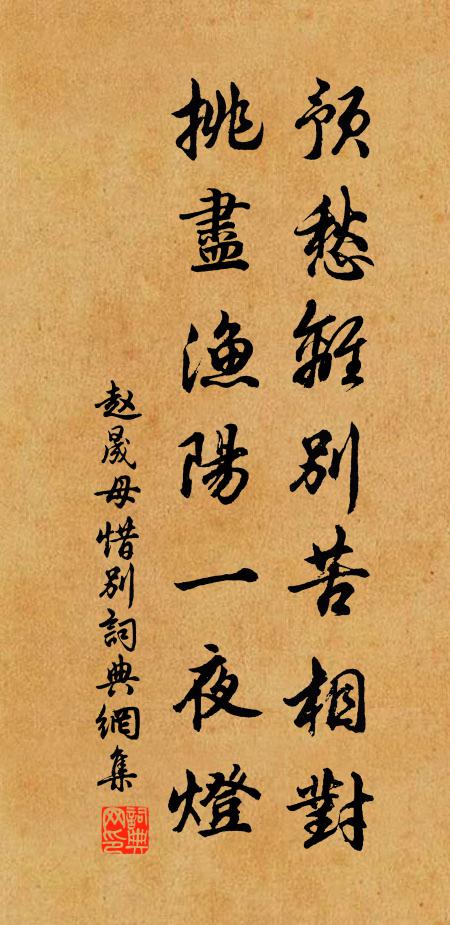 預愁離別苦相對
挑盡漁陽一夜燈
赵晟母惜别詞典網集
詞典網印